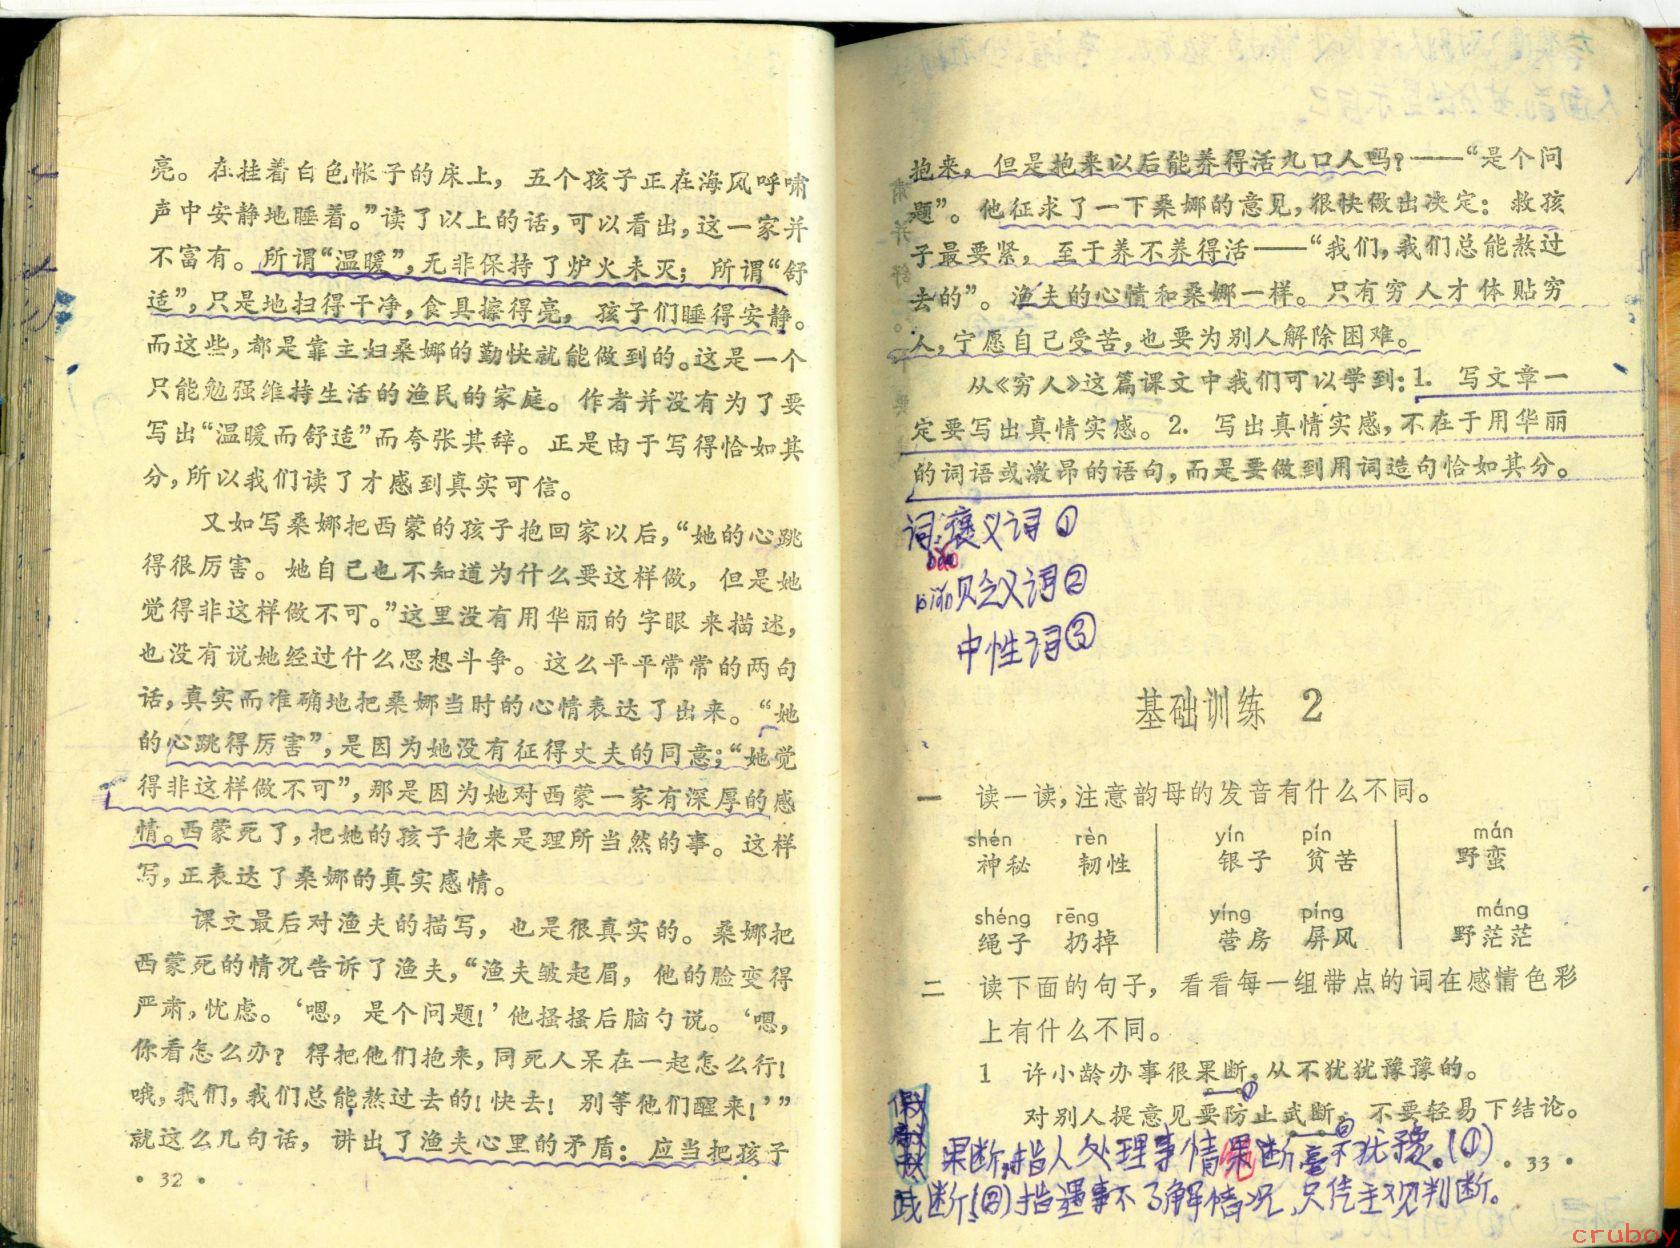 亮。在挂着白色帐子的床上，五个孩子正在海风呼啸
声中安静地睡着。”读了以上的话，可以看出，这一家并
不富有。所谓“温暖”，无非保持了炉火未灭；所谓“舒
适”，只是地扫得干净，食具擦得亮，孩子们睡得安静。
而这些，都是靠主妇桑娜的勤快就能做到的。这是一个
只能勉强维持生活的渔民的家庭。作者并没有为了要
写出“温暖而舒适”而夸张其辞。正是由于写得恰如其
分，所以我们读了才感到真实可信。
又如写桑娜把西蒙的孩子抱回家以后，“她的心跳
得很厉害。她自己也不知道为什么要这样做，但是她
觉得非这样做不可。”这里没有用华丽的字眼来描述，
也没有说她经过什么思想斗争。这么平平常常的两句
话，真实而准确地把桑娜当时的心情表达了出来。“她
的心跳得厉害”，是因为她没有征得丈夫的同意；“她觉
得非这样做不可”，那是因为她对西蒙一家有深厚的感
情。西蒙死了，把她的孩子抱来是理所当然的事。这样
写，正表达了桑娜的真实感情。
课文最后对渔夫的描写，也是很真实的。桑娜把
西蒙死的情况告诉了渔夫，“渔夫皱起眉，他的脸变得
严肃，忧虑。‘嗯，是个问题！’他搔搔后脑勺说。‘嗯，
你看怎么办？得把他们抱来，同死人呆在一起怎么行！
哦，我们，我们总能熬过去的！快去！别等他们醒来！’”
就这么几句话，讲出了渔夫心里的矛盾：应当把孩子
· 32 ·
抱来，但是抱来以后能养得活九口人吗？——“是个问
题”。他征求了一下桑娜的意见，很快做出决定：救孩
子最要紧，至于养不养得活——“我们，我们总能熬过
去的”。渔夫的心情和桑娜一样。只有穷人才体贴穷
人，宁愿自己受苦，也要为别人解除困难。
从《穷人》这篇课文中我们可以学到：1. 写文章一
定要写出真情实感。2. 写出真情实感，不在于用华丽
的词语或激昂的语句，而是要做到用词造句恰如其分。
词：褒义词①
bāo
biǎn贬义词②
中性词③
基础训练 2
一 读一读，注意韵母的发音有什么不同。
shén rèn yín pín mán
神秘 韧性 银子 贫苦 野蛮
shéng rēng yíng píng máng
绳子 扔掉 营房 屏风 野茫茫
二 读下面的句子，看看每一组带点的词在感情色彩
上有什么不同。
1 许小龄办事很果断，从不犹犹豫豫的。
①
对别人提意见要防止武断，不要轻易下结论。
②
果断：指人处理事情果断毫不犹豫。(①)
· 33 ·
武断：(②)指遇事不了解情况，只凭主观判断。
cruboy